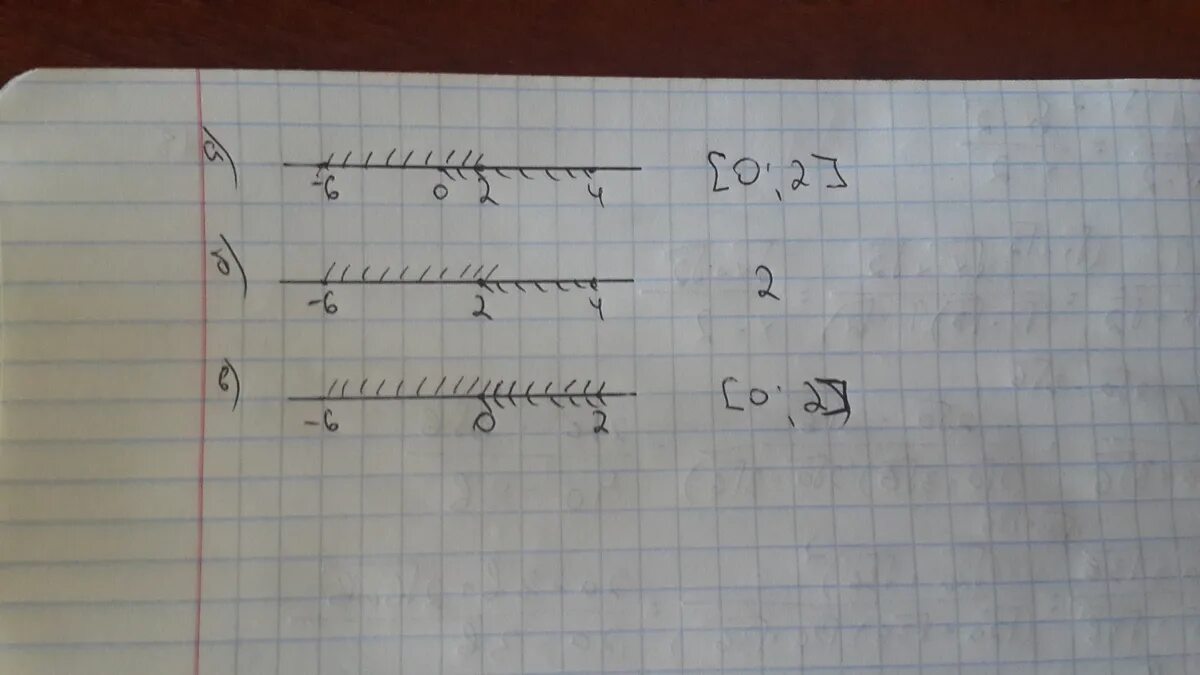 а) -6 0 2 4 [0; 2]
б) -6 2 4 2
в) -6 0 2 [0; 2]